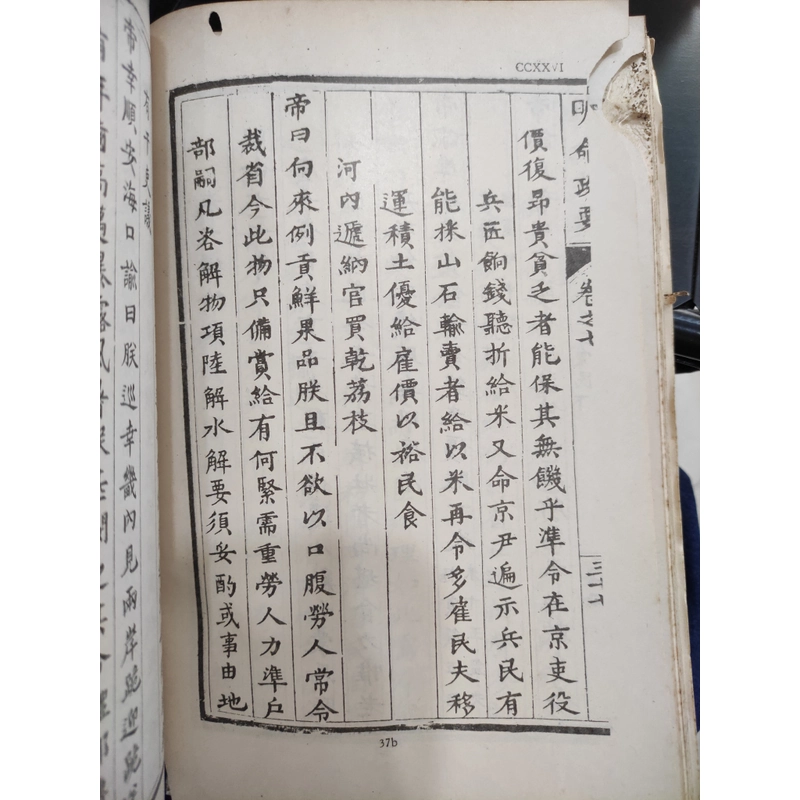 CCXXVI
明命政要 卷之七 三十七
價復昂貴貧乏者能保其無饑乎準令在京吏役
兵匠餉錢聽折給米又命京尹遍示兵民有
能採山石輸賣者給以米再令多雇民夫移
運積土優給雇價以裕民食
河內遞納官買乾荔枝
帝曰向來例貢鮮果品朕且不欲以口腹勞人常令
裁省今此物只備賞給有何緊需重勞人力準戶
部嗣凡咨解物項陸解水解要須妥酌或事由地
37b
帝幸順安海口諭曰朕巡幸畿內見兩岸跪迎